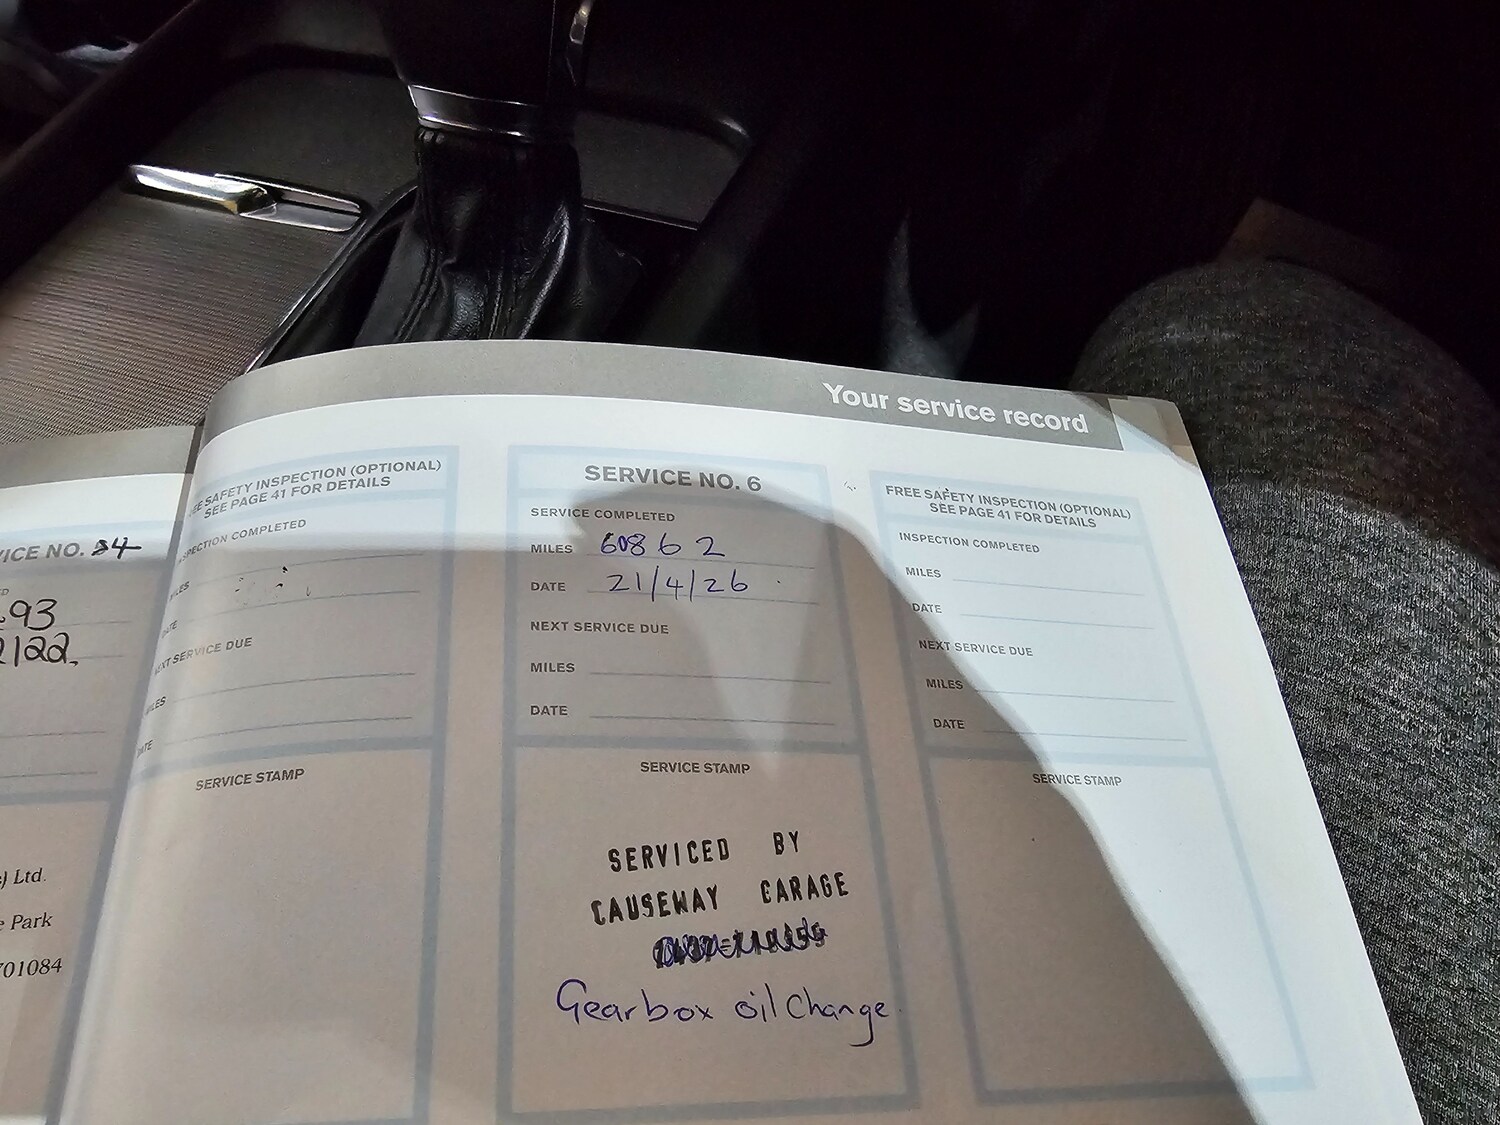 Your service record
VICE NO. 4
93
2122.
) Ltd.
e Park
701084
SAFETY INSPECTION (OPTIONAL)
SEE PAGE 41 FOR DETAILS
INSPECTION COMPLETED
MILES
DATE
NEXT SERVICE DUE
MILES
DATE
SERVICE STAMP
SERVICE NO. 6
SERVICE COMPLETED
MILES 60862
DATE 21/4/26
NEXT SERVICE DUE
MILES
DATE
SERVICE STAMP
SERVICED BY
CAUSEWAY GARAGE
Gearbox oil change
FREE SAFETY INSPECTION (OPTIONAL)
SEE PAGE 41 FOR DETAILS
INSPECTION COMPLETED
MILES
DATE
NEXT SERVICE DUE
MILES
DATE
SERVICE STAMP